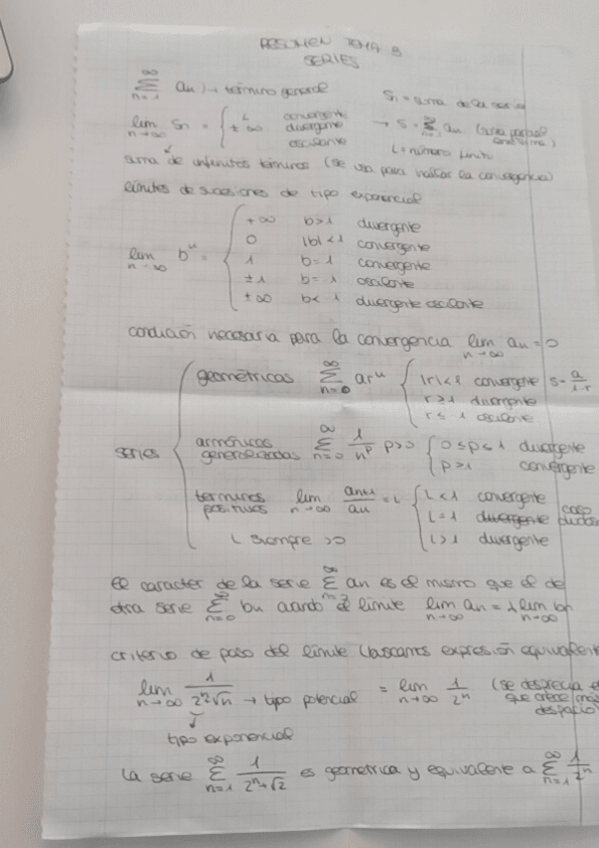 RESUMEN TEMA 3
SERIES
∞ Σ n=1 an → término general
Sn = suma de la serie
lim n→∞ Sn = { L convergente
± ∞ divergente
oscilante
→ S = ∞ Σ n=1 an (suma parcial
L = número finito
suma de infinitos términos (se usa para hallar la convergencia)
límites de sucesiones de tipo exponencial
lim n→∞ bⁿ = { +∞ b>1 divergente
0 |b|<1 convergente
1 b=1 convergente
±1 b= 1 oscilante
±∞ b< 1 divergente oscilante
condición necesaria para la convergencia lim n→∞ an = 0
series {
geométricas ∞ Σ n=0 arⁿ { |r|<1 convergente S = a/1-r
r≥1 divergente
r≤ 1 oscilante
armónicas generalizadas ∞ Σ n=0 1/nᵖ p>0 { 0≤p≤1 divergente
p>1 convergente
términos positivos lim n→∞ an+1/an = L { L<1 convergente
L=1 divergente caso dudoso
L>1 divergente
L siempre >0
el carácter de la serie ∞ Σ an es el mismo que el de
otra serie ∞ Σ n=0 bn cuando el límite lim n→∞ an = lim n→∞ bn
criterio de paso del límite (buscamos expresión equivalente
lim n→∞ 1/2ⁿ√n → tipo potencial = lim n→∞ 1/2ⁿ (se desprecia el
que crece más
despacio
tipo exponencial
La serie ∞ Σ n=1 1/2ⁿ+√2 es geométrica y equivalente a ∞ Σ n=1 1/2ⁿ